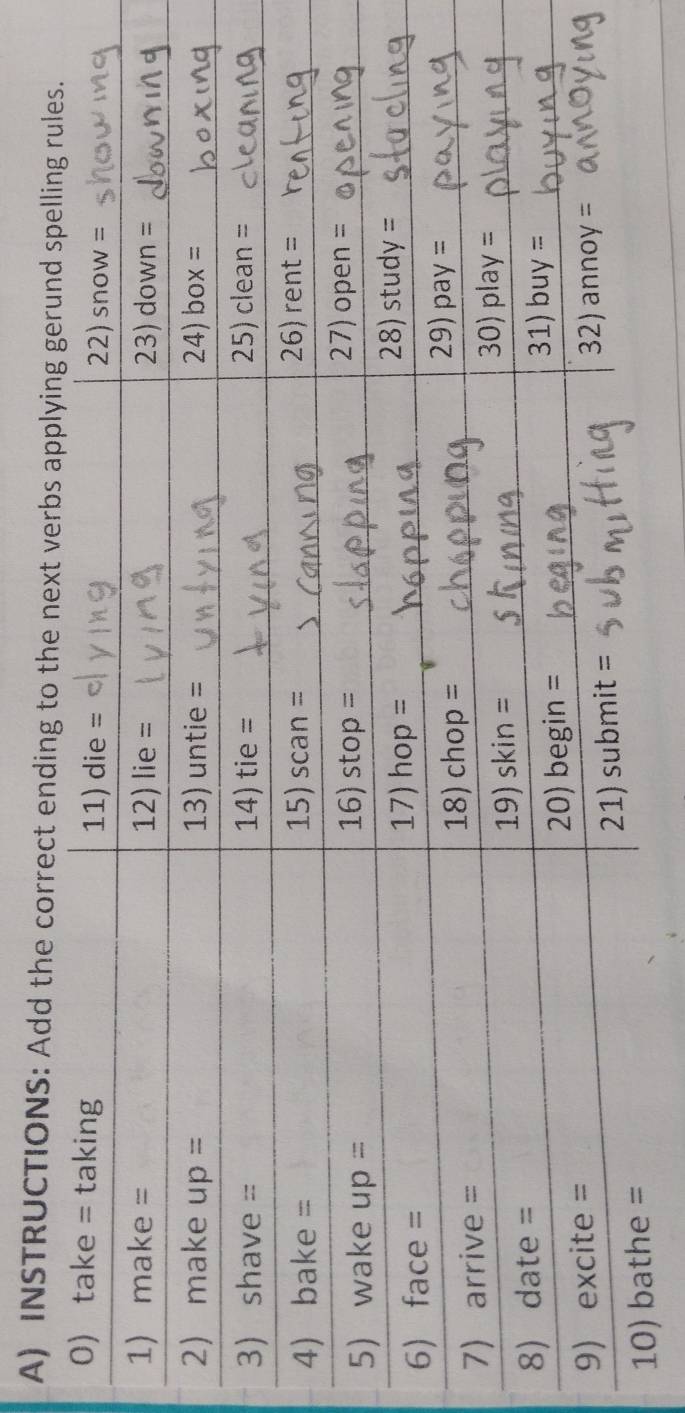 A) INSTRUCTIONS: Add the correct ending to the next verbs applying gerund spelling rules.
0) take = taking
1) make =
2) make up =
3) shave =
4) bake =
5) wake up =
6) face =
7) arrive =
8) date =
9) excite =
10) bathe =
11) die = dying
12) lie = lying
13) untie = untying
14) tie = tying
15) scan = scanning
16) stop = stopping
17) hop = hopping
18) chop = chopping
19) skin = skining
20) begin = beging
21) submit = submitting
22) snow = showing
23) down = downing
24) box = boxing
25) clean = cleaning
26) rent = renting
27) open = opening
28) study = studing
29) pay = paying
30) play = playing
31) buy = buying
32) annoy = annoying